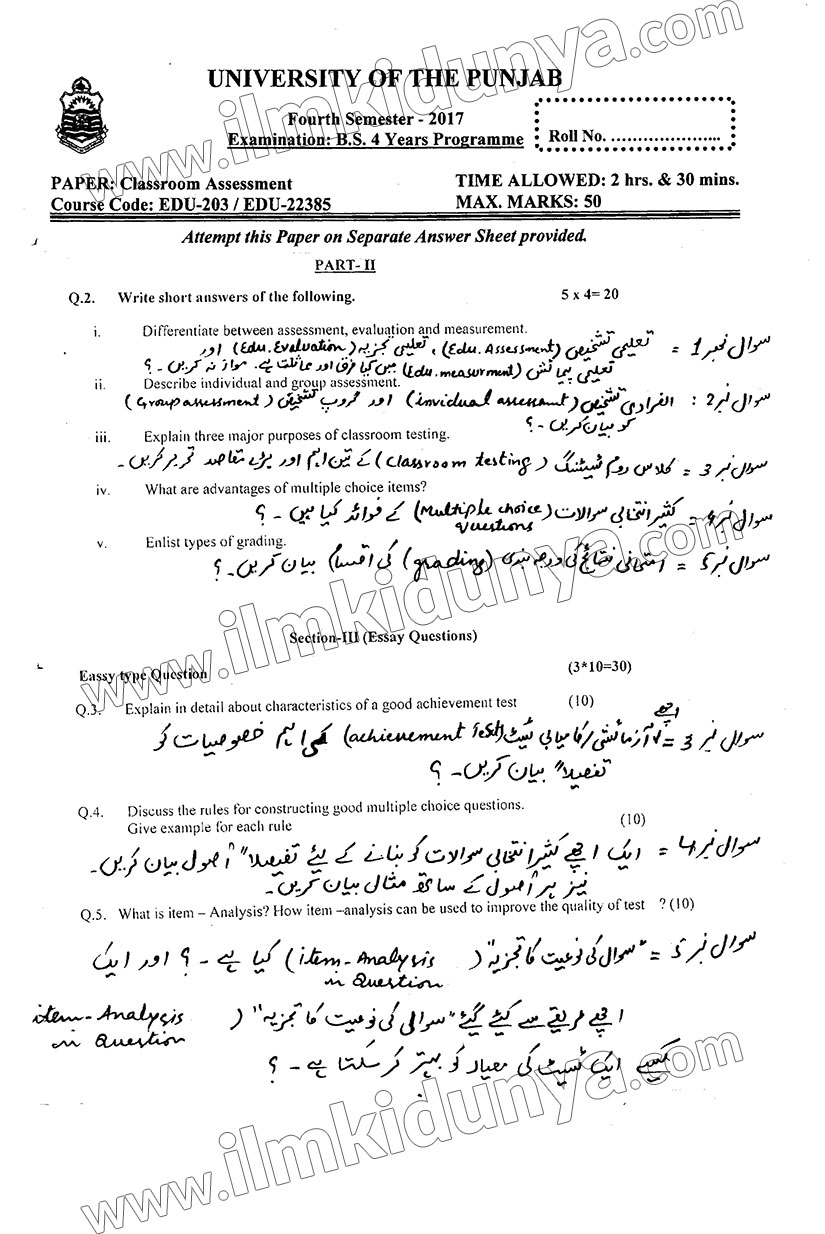 UNIVERSITY OF THE PUNJAB
Fourth Semester - 2017
Examination: B.S. 4 Years Programme
Roll No. .......................
PAPER: Classroom Assessment
Course Code: EDU-203 / EDU-22385
TIME ALLOWED: 2 hrs. & 30 mins.
MAX. MARKS: 50
Attempt this Paper on Separate Answer Sheet provided.
PART- II
Q.2. Write short answers of the following. 5 x 4= 20
i. Differentiate between assessment, evaluation and measurement.
سوال نمبر 1 = تعلیمی تشخیص (Edu. Assessment)، تعلیمی تجزیہ (Edu. Evaluation) اور
تعلیمی پیمائش (Edu. measurment) میں کیا فرق اور مماثلت ہے۔ موازنہ کریں۔ ؟
ii. Describe individual and group assessment.
سوال نمبر 2: انفرادی تشخیص (invidual assessment) اور گروپ تشخیص (Group assessment)
کو بیان کریں۔ ؟
iii. Explain three major purposes of classroom testing.
سوال نمبر 3 = کلاس روم ٹیسٹنگ (classroom testing) کے تین اہم اور بڑے مقاصد تحریر کریں۔
iv. What are advantages of multiple choice items?
سوال نمبر 4 = کثیر انتخابی سوالات (Multiple choice questions) کے فوائد کیا ہیں۔ ؟
v. Enlist types of grading.
سوال نمبر 5 = امتحانی نتائج کی درجہ بندی (grading) کی اقسام بیان کریں۔ ؟
Section-III (Essay Questions)
Eassy type Question (3*10=30)
Q.3. Explain in detail about characteristics of a good achievement test (10)
سوال نمبر 3 = اچھے آزمائشی/کامیابی ٹیسٹ (achievement test) کی اہم خصوصیات کو
تفصیلاً بیان کریں۔ ؟
Q.4. Discuss the rules for constructing good multiple choice questions.
Give example for each rule (10)
سوال نمبر 4 = ایک اچھے کثیر انتخابی سوالات کو بنانے کے لیئے تفصیلاً اُصول بیان کریں۔
نیز ہر اُصول کے ساتھ مثال بیان کریں۔
Q.5. What is item – Analysis? How item –analysis can be used to improve the quality of test ? (10)
سوال نمبر 5 = "سوال کی نوعیت کا تجزیہ" (item-Analysis in Question) کیا ہے۔ ؟ اور ایک
اچھے طریقے سے کیئے گیئے "سوال کی نوعیت کا تجزیہ" (item-Analysis in Question
کیسے ایک ٹیسٹ کی معیار کو بہتر کر سکتا ہے۔ ؟
www.ilmkidunya.com
www.ilmkidunya.com
www.ilmkidunya.com
www.ilmkidunya.com